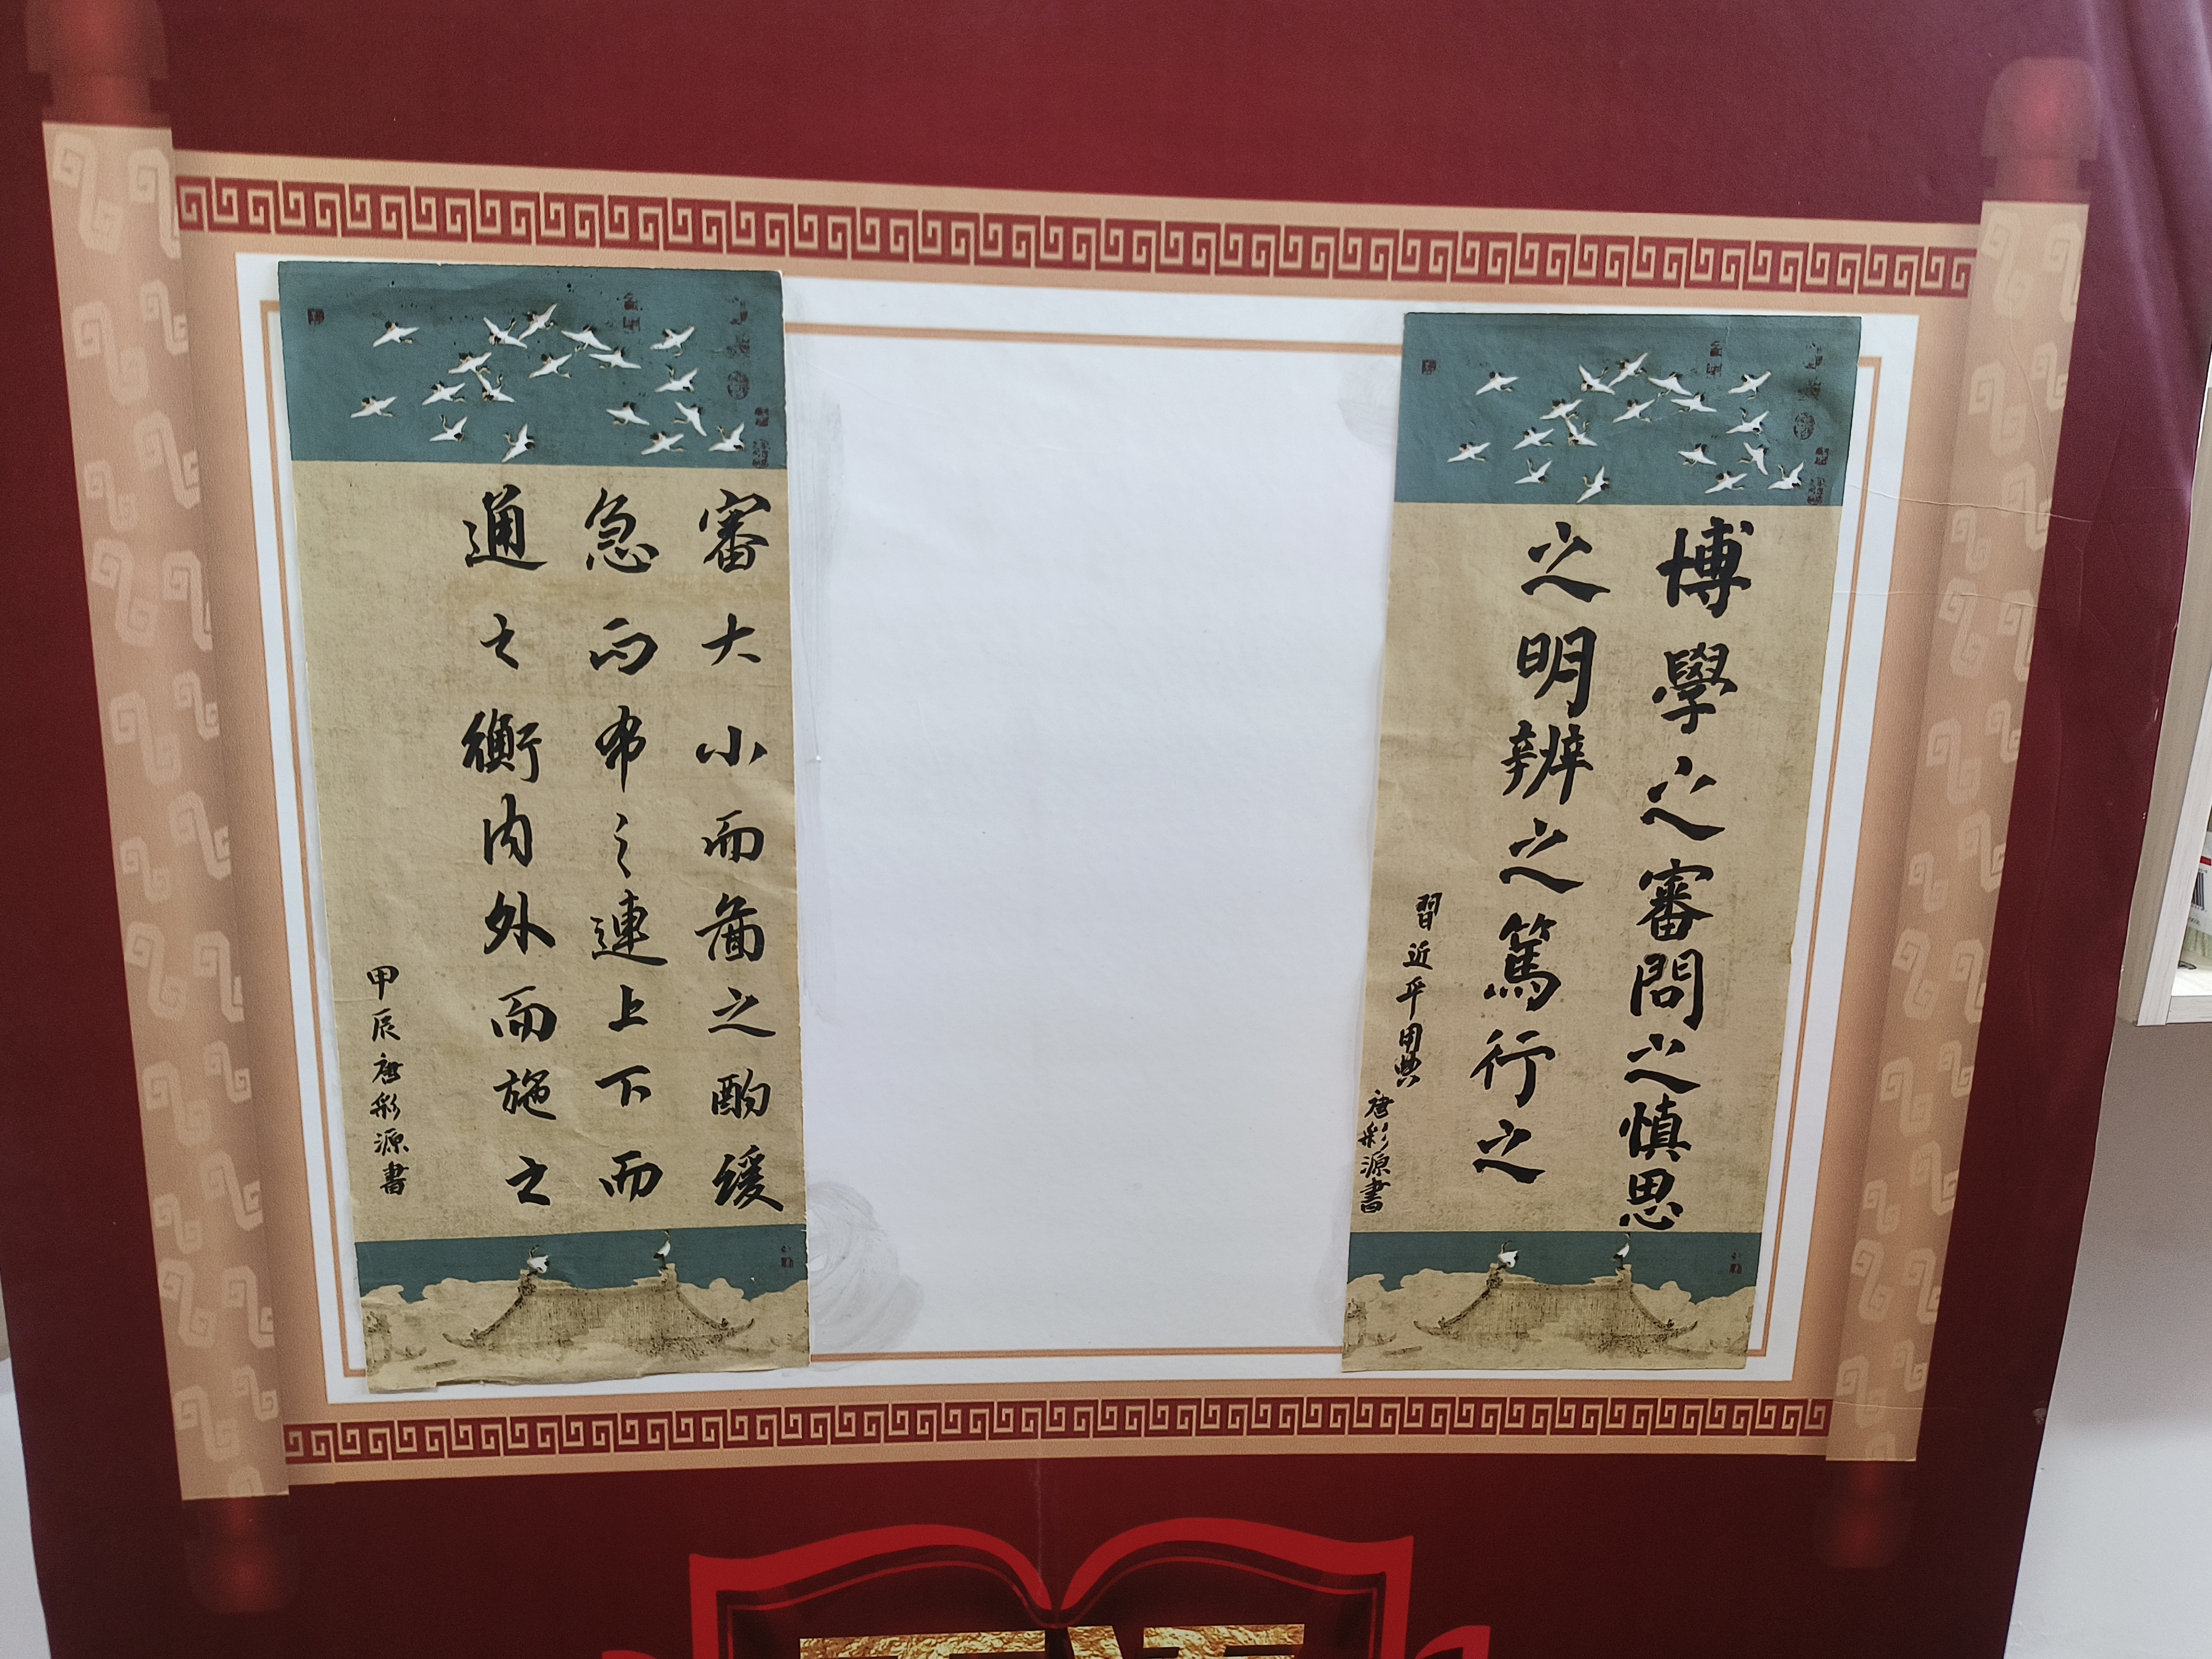 博學之審問之慎思
之明辨之篤行之
習近平用典
唐彩源書
審大小而啚之酌緩
急而布之連上下而
通之衡内外而施之
甲辰唐彩源書